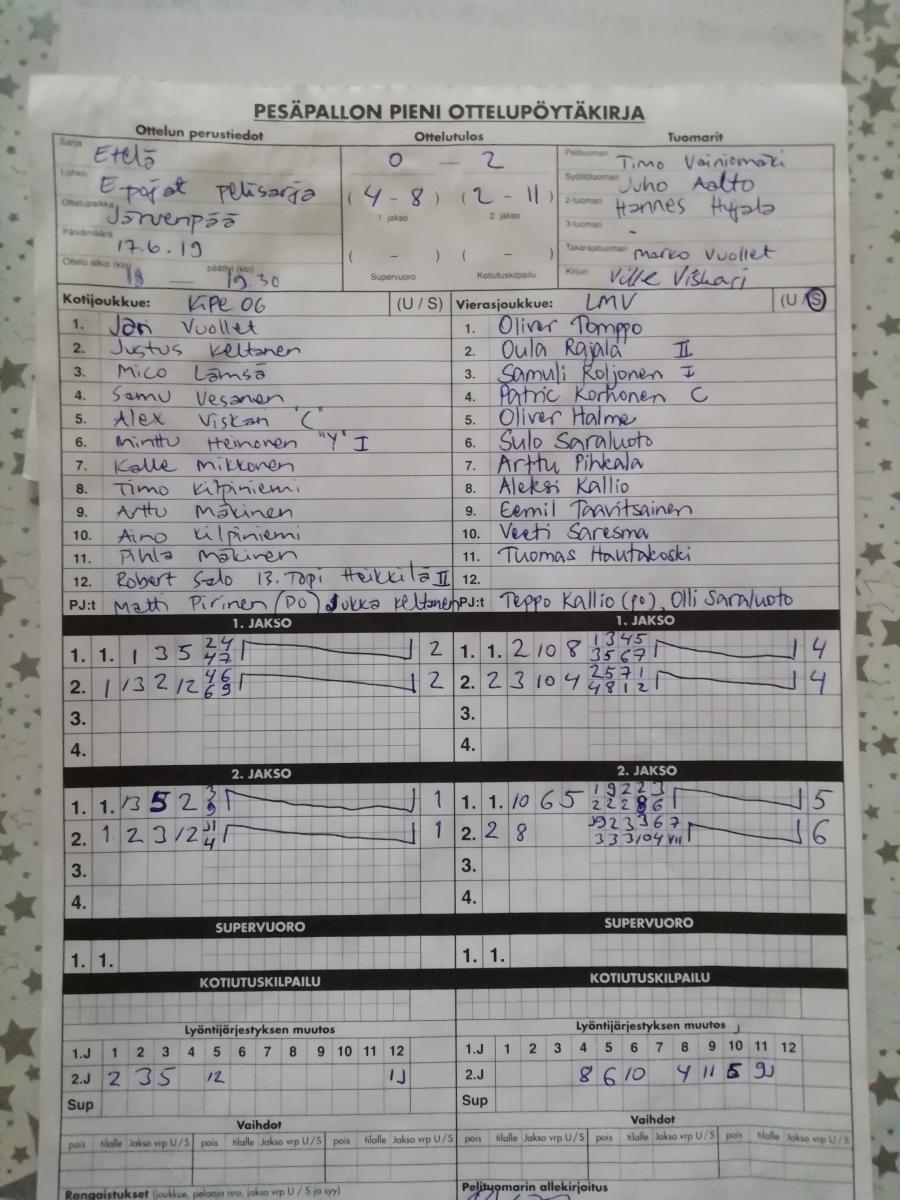 PESÄPALLON PIENI OTTELUPÖYTÄKIRJA
Ottelun perustiedot Ottelutulos Tuomarit
Sarja Etelä
Lohko E-pojat pelisarja
Ottelupaikka Järvenpää
Päivämäärä 17.6.19
Ottelu alkoi (klo) 18 — päättyi (klo) 19.30
0 — 2
(4 - 8) (2 - 11)
1. jakso 2. jakso
( - ) ( - )
Supervuoro Kotiutuskilpailu
Pelituomari Timo Vainiomäki
Syöttötuomari Juho Aalto
2-tuomari Hannes Hyjala
3-tuomari -
Takarajatuomari Marko Vuollet
Kirjuri Ville Viskari
Kotijoukkue: KiPe 06 (U / S)
1. Jan Vuollet
2. Justus Keltanen
3. Mico Lämsä
4. Samu Vesanen
5. Alex Viskari "C"
6. Minttu Heinonen "Y" I
7. Kalle Mikkonen
8. Timo Kilpiniemi
9. Arttu Mäkinen
10. Aino Kilpiniemi
11. Pihla Mäkinen
12. Robert Salo 13. Topi Heikkilä II
PJ:t Matti Pirinen (PO) Jukka Keltanen
Vierasjoukkue: LMV (U / S)
1. Oliver Pomppo
2. Oula Rajala II
3. Samuli Roljonen I
4. Patric Korhonen C
5. Oliver Halme
6. Sulo Saraluoto
7. Arttu Pihkala
8. Aleksi Kallio
9. Eemil Taavitsainen
10. Veeti Saresma
11. Tuomas Hautakoski
12.
PJ:t Teppo Kallio (po), Olli Saraluoto
1. JAKSO 1. JAKSO
1. 1. 1 3 5 24 47 2
2. 1 13 2 12 46 69 2
3.
4.
1. 1. 2 10 8 1345 3567 4
2. 2 3 10 4 2571 4812 4
3.
4.
2. JAKSO 2. JAKSO
1. 1. 13 5 2 1
2. 1 2 3 12 11 4 1
3.
4.
1. 1. 10 6 5 19223 22286 5
2. 2 8 6
3.
4.
SUPERVUORO SUPERVUORO
1. 1. 1. 1.
KOTIUTUSKILPAILU KOTIUTUSKILPAILU
Lyöntijärjestyksen muutos Lyöntijärjestyksen muutos
1.J 1 2 3 4 5 6 7 8 9 10 11 12 1.J 1 2 3 4 5 6 7 8 9 10 11 12
2.J 2 3 5 12 2.J 8 6 10 4 11 5
Sup Sup
Vaihdot Vaihdot
pois tilalle Jakso vrp U / S pois tilalle Jakso vrp U / S pois tilalle Jakso vrp U / S pois tilalle Jakso vrp U / S pois tilalle Jakso vrp U / S pois tilalle Jakso vrp U / S
Rangaistukset (joukkue, pelaaja nro, jakso vrp U / S ja syy) Pelituomarin allekirjoitus